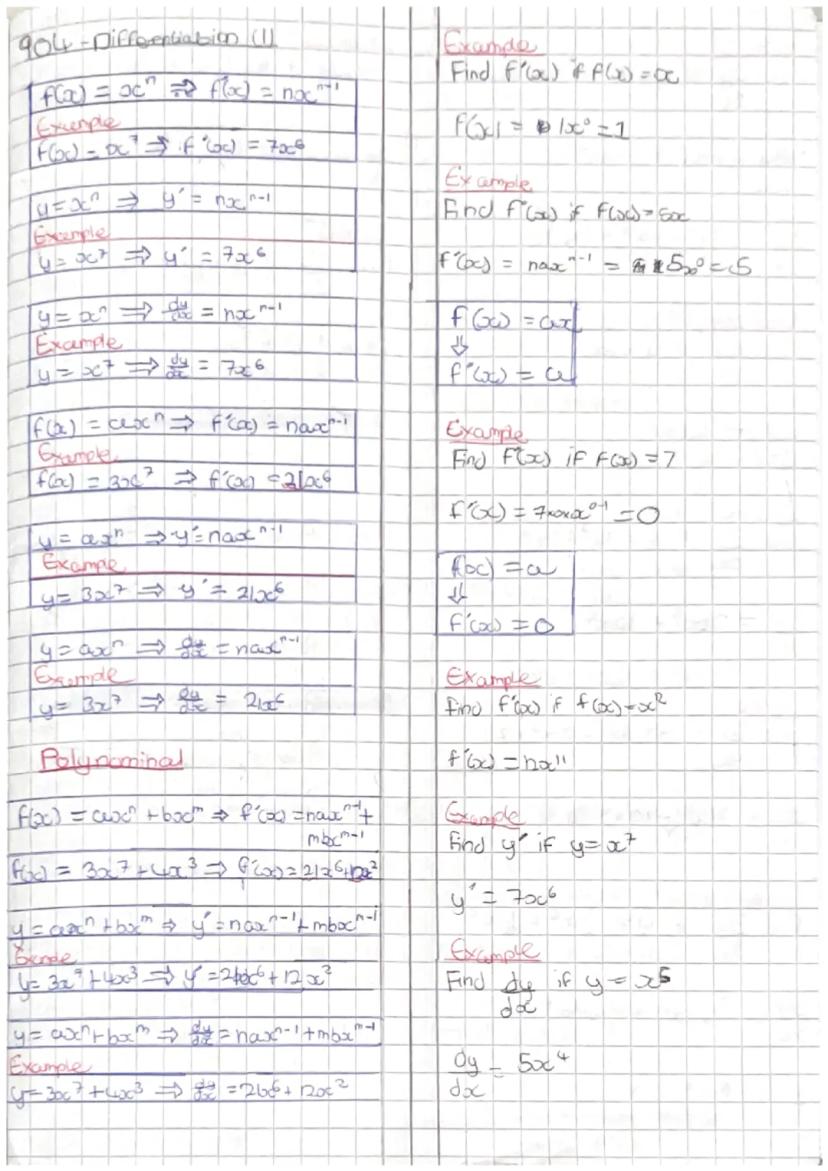 904 - Differentiation (1)
f(x) = xⁿ ⇒ f'(x) = nxⁿ⁻¹
Example
f(x) = x⁷ ⇒ f'(x) = 7x⁶
y = xⁿ ⇒ y' = nxⁿ⁻¹
Example
y = x⁷ ⇒ y' = 7x⁶
y = xⁿ ⇒ dy/dx = nxⁿ⁻¹
Example
y = x⁷ ⇒ dy/dx = 7x⁶
f(x) = axⁿ ⇒ f'(x) = naxⁿ⁻¹
Example
f(x) = 3x⁷ ⇒ f'(x) = 21x⁶
y = axⁿ ⇒ y' = naxⁿ⁻¹
Example
y = 3x⁷ ⇒ y' = 21x⁶
y = axⁿ ⇒ dy/dx = naxⁿ⁻¹
Example
y = 3x⁷ ⇒ dy/dx = 21x⁶
Polynominal
f(x) = axⁿ + bxᵐ ⇒ f'(x) = naxⁿ⁻¹ +
mbxᵐ⁻¹
f(x) = 3x⁷ + 4x³ ⇒ f'(x) = 21x⁶ + 12x²
y = axⁿ + bxᵐ ⇒ y' = naxⁿ⁻¹ + mbxⁿ⁻¹
y = 3x⁹ + 4x³ ⇒ y' = 21x⁶ + 12x²
y = axⁿ + bxᵐ ⇒ dy/dx = naxⁿ⁻¹ + mbxᵐ⁻¹
Example
y = 3x⁷ + 4x³ ⇒ dy/dx = 21x⁶ + 12x²
Example
Find f'(x) if f(x) = x
f(x) = 1x⁰ = 1
Example
Find f'(x) if f(x) = 5x
f'(x) = naxⁿ⁻¹ = 5x⁰ = 5
f(x) = ax
⇓
f'(x) = a
Example
Find f'(x) if f(x) = 7
f'(x) = 7×0×x⁰⁻¹ = 0
f(x) = a
⇓
f'(x) = 0
Example
Find f'(x) if f(x) = x²
f'(x) = nx¹¹
Example
Find y' if y = x⁷
y' = 7x⁶
Example
Find dy/dx if y = x⁵
dy/dx = 5x⁴